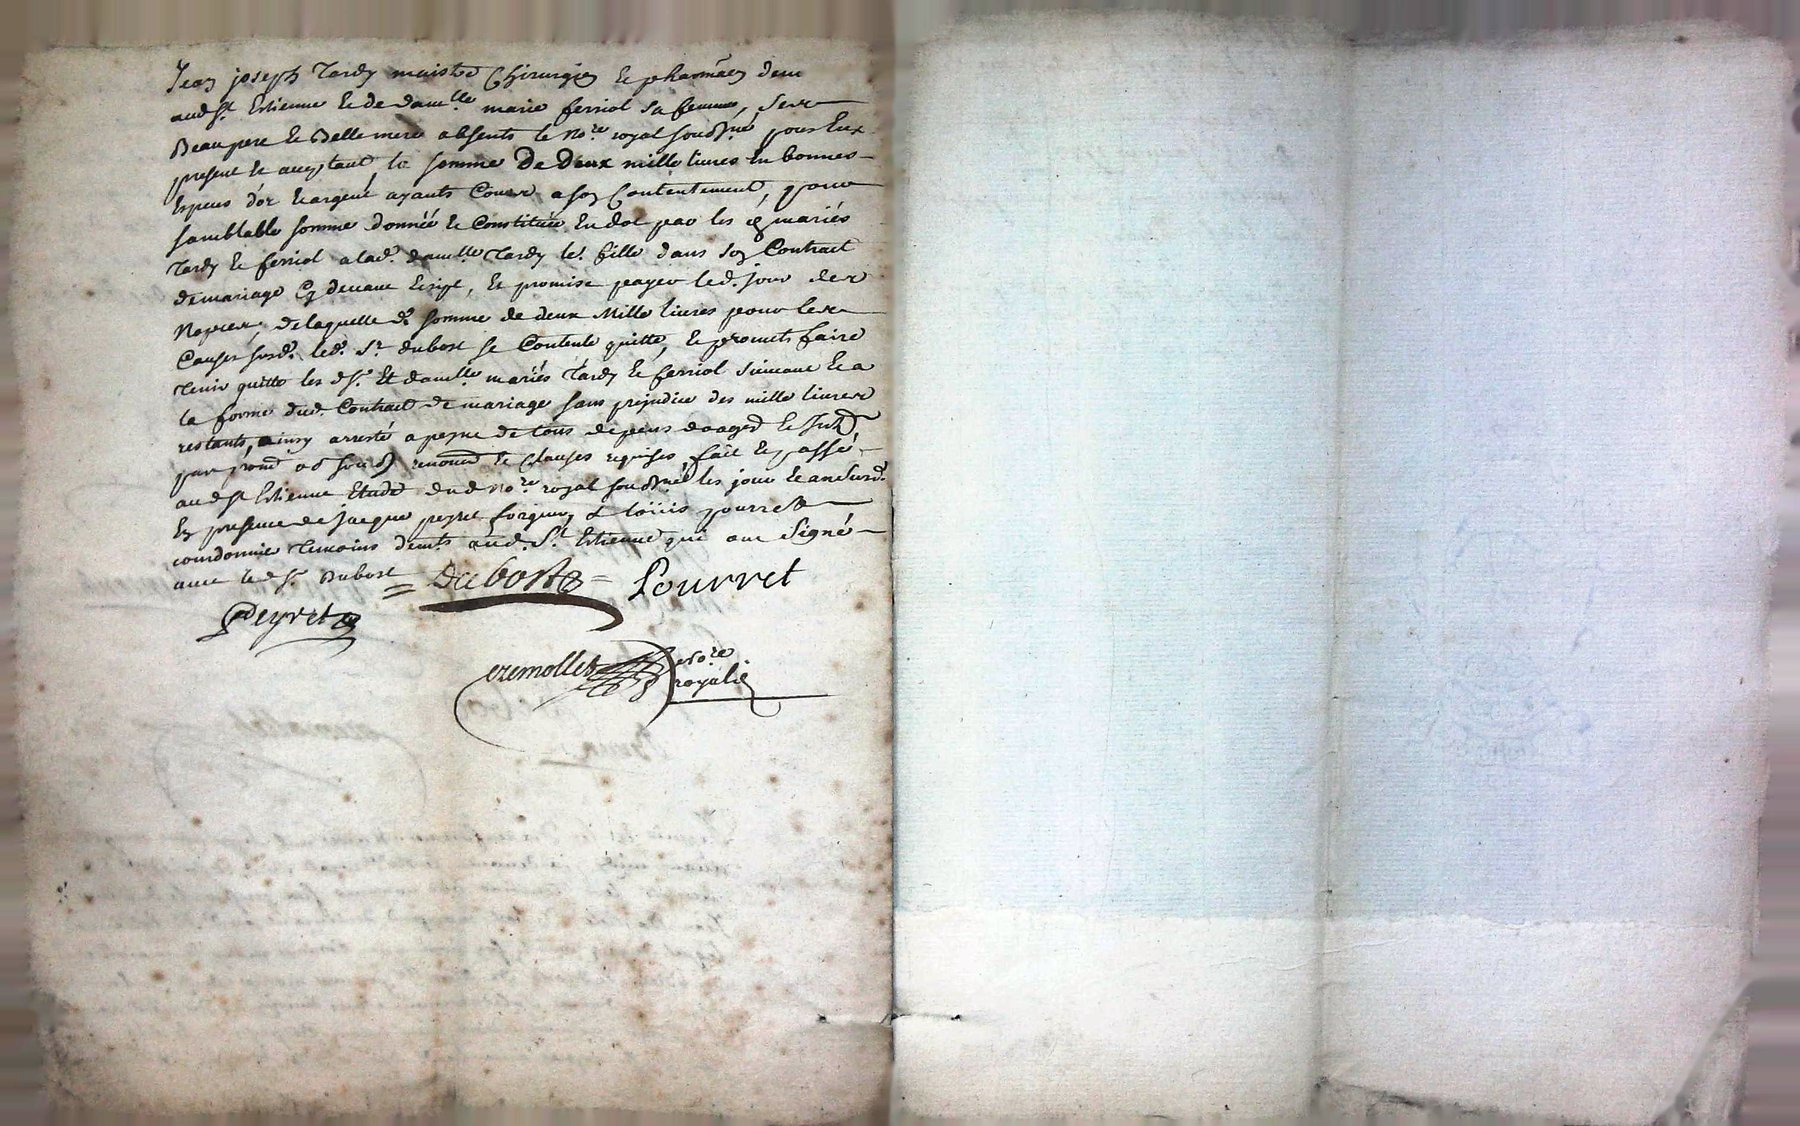 Jean joseph Tardy maistre Chirurgien et pharmacien dem
aud St Estienne et de dam.lle marie ferriol sa femme, ses
Beaupere et Bellemere absents le No.re royal soubsné pour eux
present et aceptant la somme De Deux mille livres en bonnes
especes d'or et argent ayants Cours a son Contentement, pour
samblable somme donnée et Constituée en dot par les mariés
Tardy et ferriol a lad. dam.lle Tardy le. fille dans son Contract
de mariage cy devant et promise payer led. jour des
Nopces, de laquelle d. somme de deux Mille livres pour les
Causes susd. led. Sr. dubost se Contente quitte, et promets faire
tenir quitte les dSr. Et damlle mariés Tardy et ferriol suivant et a
la forme dud. Contract de mariage sans prejudice des mille livres
restants, ainsy arresté a peyne de tous depens
par renond et Clauses requises fait et passé
au d St Estienne Etude dud No.re royal soubsné les jour et an susd.
En presence de jacque peyret et loüis pourret
courdonnier temoins demts. aud. St. Estienne qui ont Signé
avec le d Sr. Dubost = Dubost = Pourret
Peyret
cremollet No.re
royal